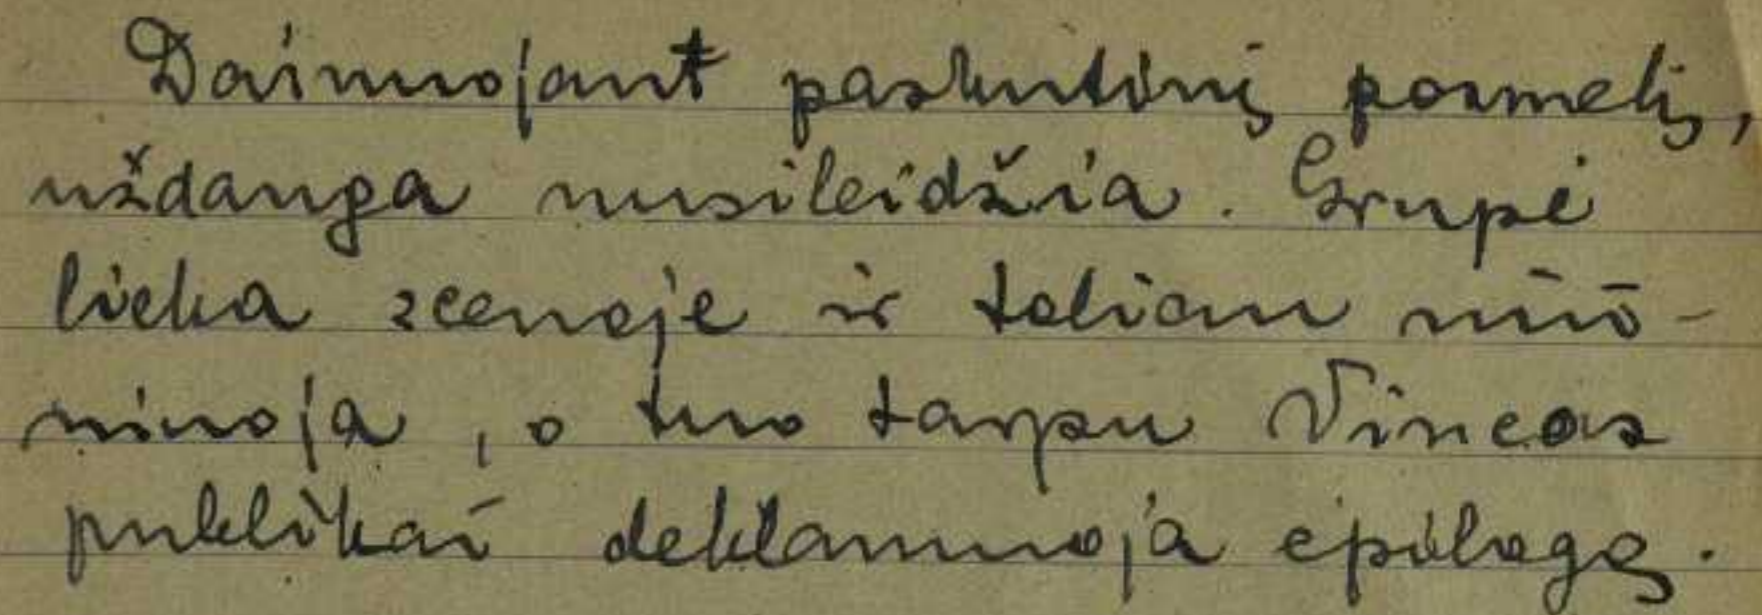 Dainuojant paskutinį posmelį,
uždanga nusileidžia. Grupė
lieka scenoje ir toliau niū-
niuoja, o tuo tarpu Vincas
publikai deklamuoja epilogą.